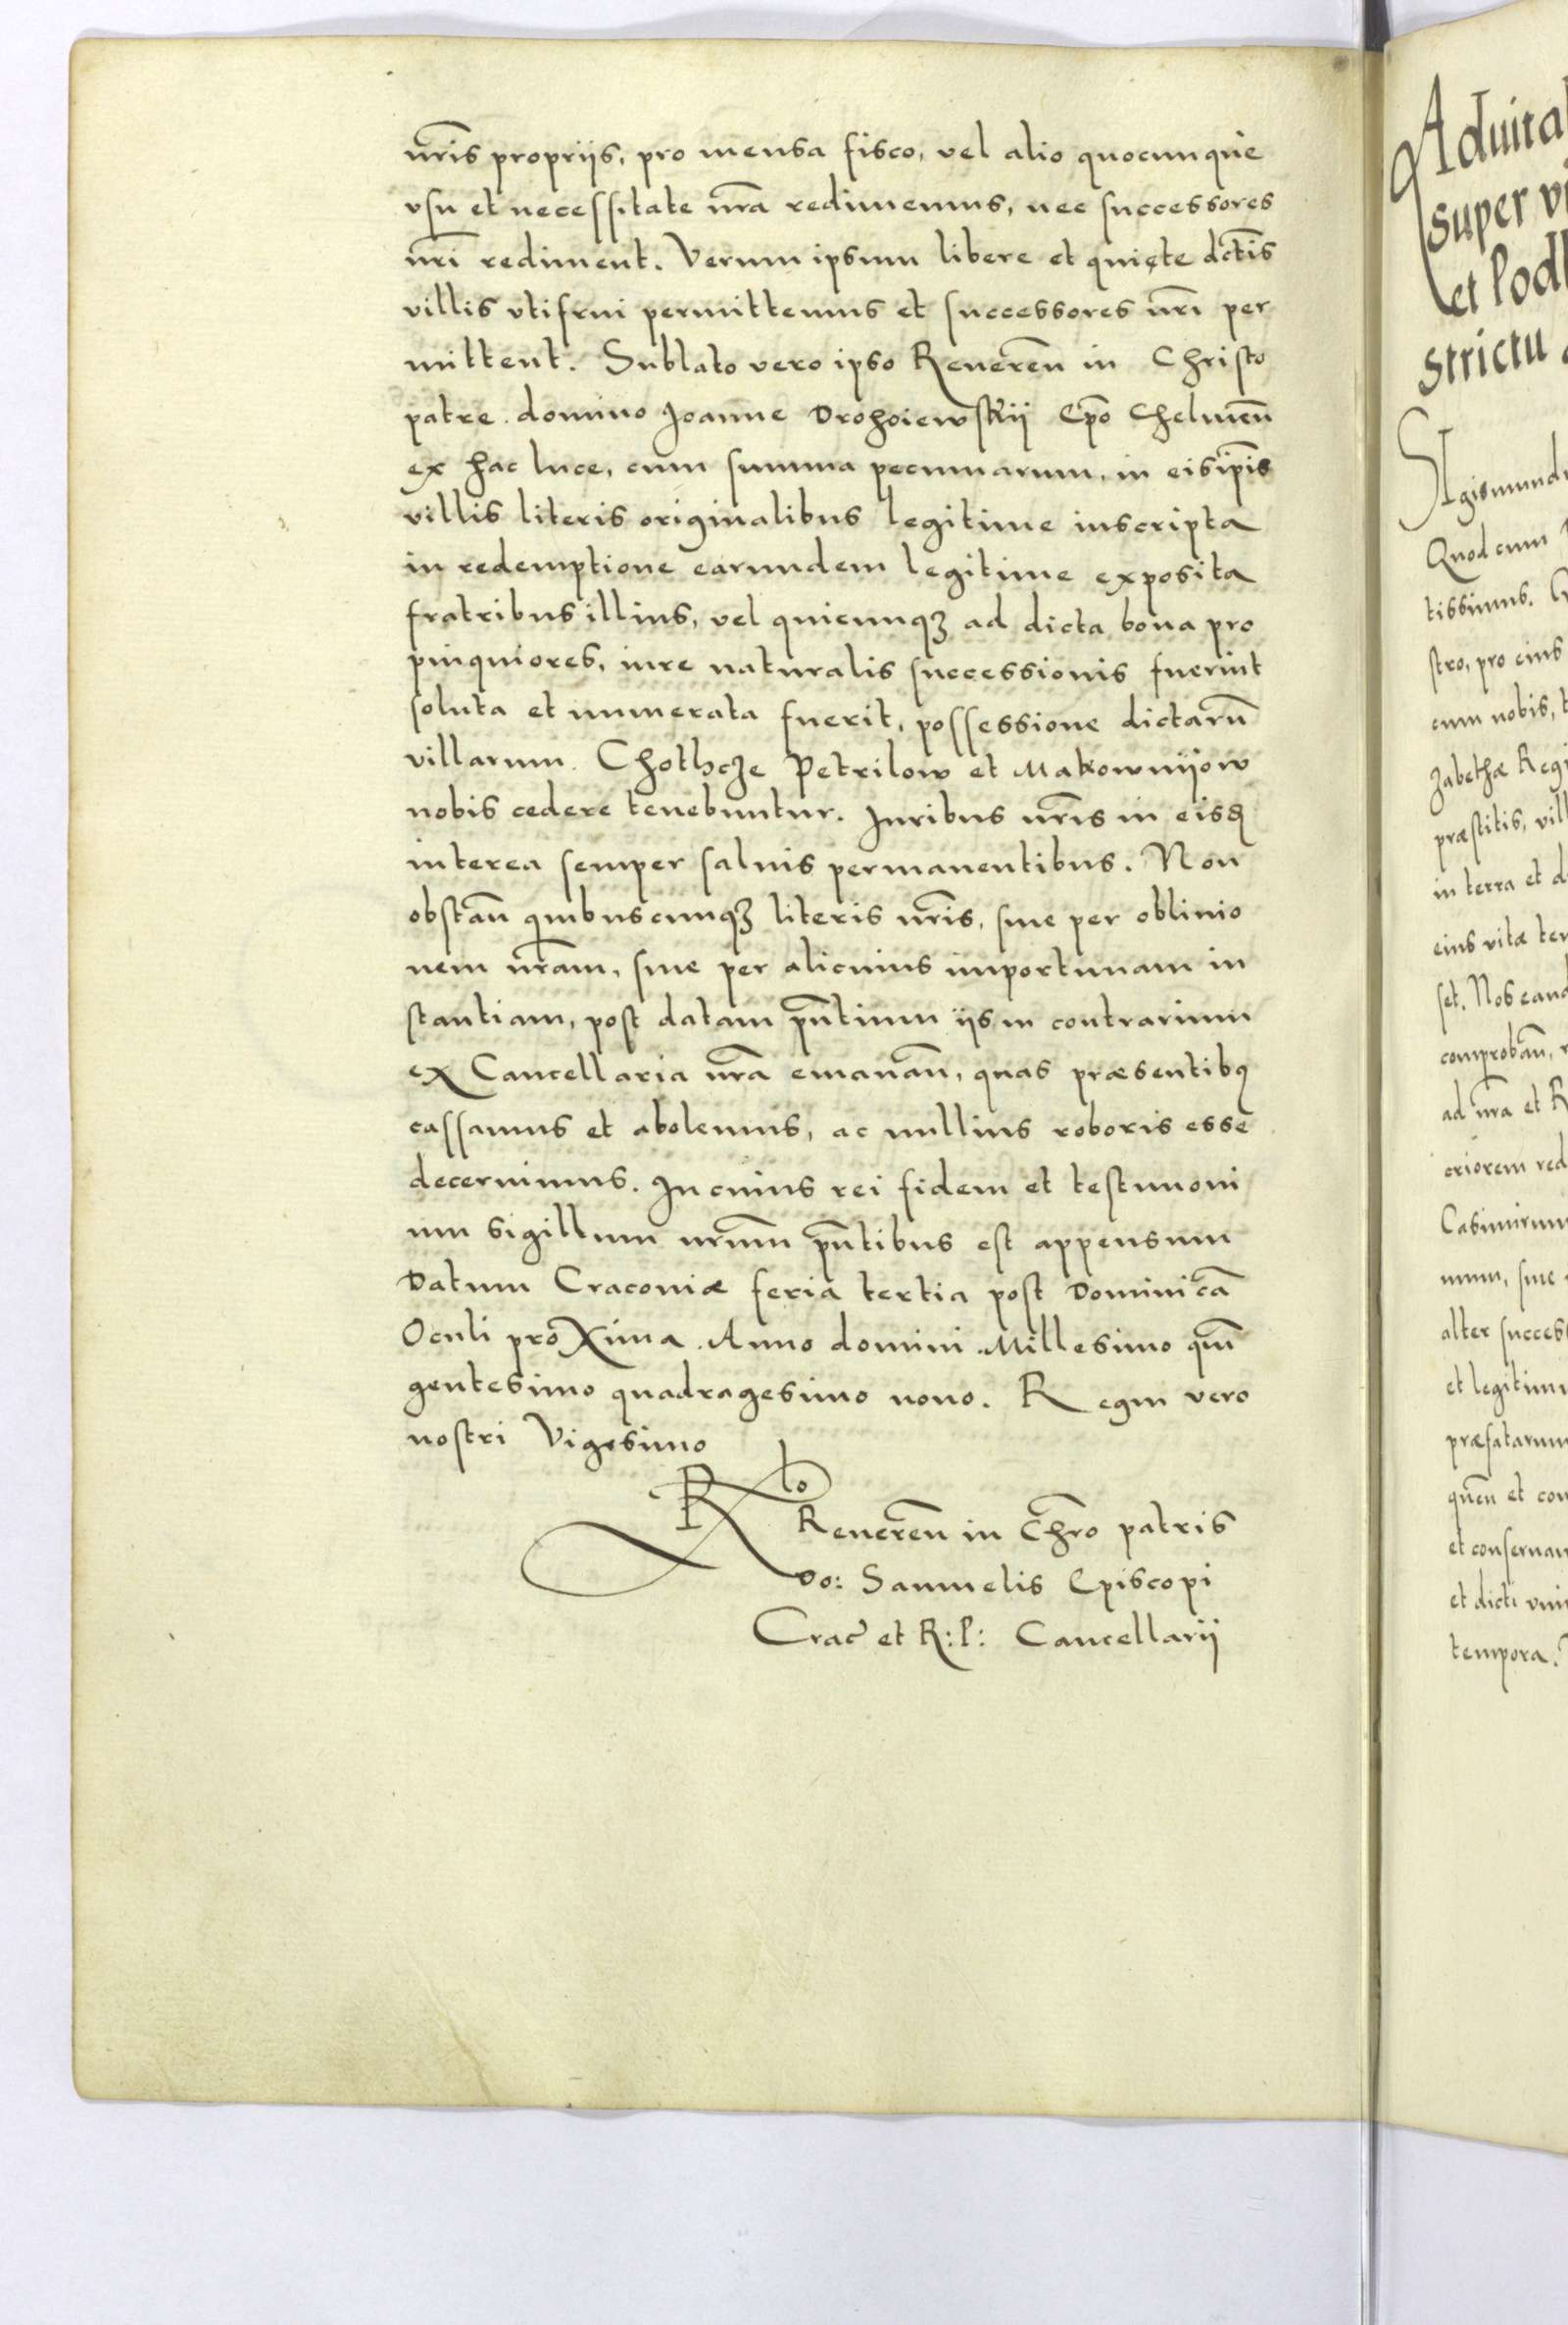 nr̃is propriis, pro mensa fisco, vel alio quocunque
vsu et necessitate nr̃a redimemus, nec successores
nr̃i rediment. Verum ipsum libere et quiete dctis̃
villis vtifrui permittemus et successores nr̃i per
mittent. Sublato vero ipso Reuereñ in Christo
patre domino Joanne Drohoiewskii Ep̃o Chelmeñ
ex hac luce, cum summa pecuniarum, in eisip̃is
villis literis originalibus legitime inscripta
in redemptione earundem legitime exposita
fratribus illius, vel quicunqꝫ ad dicta bona pro
pinquiores, iure naturalis successionis fuerint
soluta et numerata fuerit, possessione dictarũ
villarum Chothcze Petrilow et Makowniiow
nobis cedere tenebuntur. Juribus nr̃is in eisd
interea semper saluis permanentibus. Non
obstañ quibuscunqꝫ literis nr̃is, siue per obliuio
nem nr̃am, siue per alicuius importunam in
stantiam, post datam pñtium iis in contrarium
ex Cancellaria nr̃a emanañ, quas præsentibꝰ
cassamus et abolemus, ac nullius roboris esse
decernimus. In cuius rei fidem et testimoni
um sigillum nr̃um pñtibus est appensum
Datum Cracouiæ feria tertia post Dominicã
Oculi proxima. Anno domini Millesimo quĩ
gentesimo quadragesimo nono. Regni vero
nostri Vigesimo
R lo
Reuereñ in Chr̃o patris
Do: Samuelis Episcopi
Crac̃ et R: P: Cancellarii
Aduital
super vi
et Podl
strictu
SIgismundu
Quod cum
tissimus.
stro, pro eius
cum nobis, t
zabethæ Regi
præstitis, vill
in terra et d
eius vitæ ter
set. Nos eand
comprobañ,
ad nr̃a et R
criorem red
Casimirum
mum, siue
alter success
et legitimu
præfatarum
queñ et con
et conseruan
et dicti
tempora.